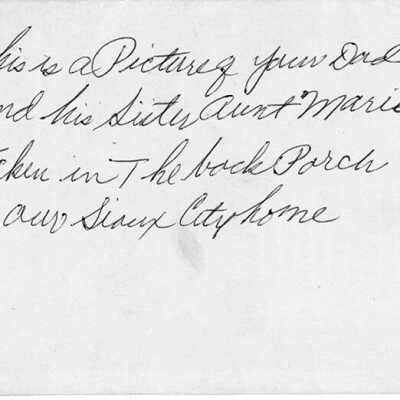 his is a Picture of your Dad
nd his Sister Aunt Marie
ken in The back Porch
our Sioux City home